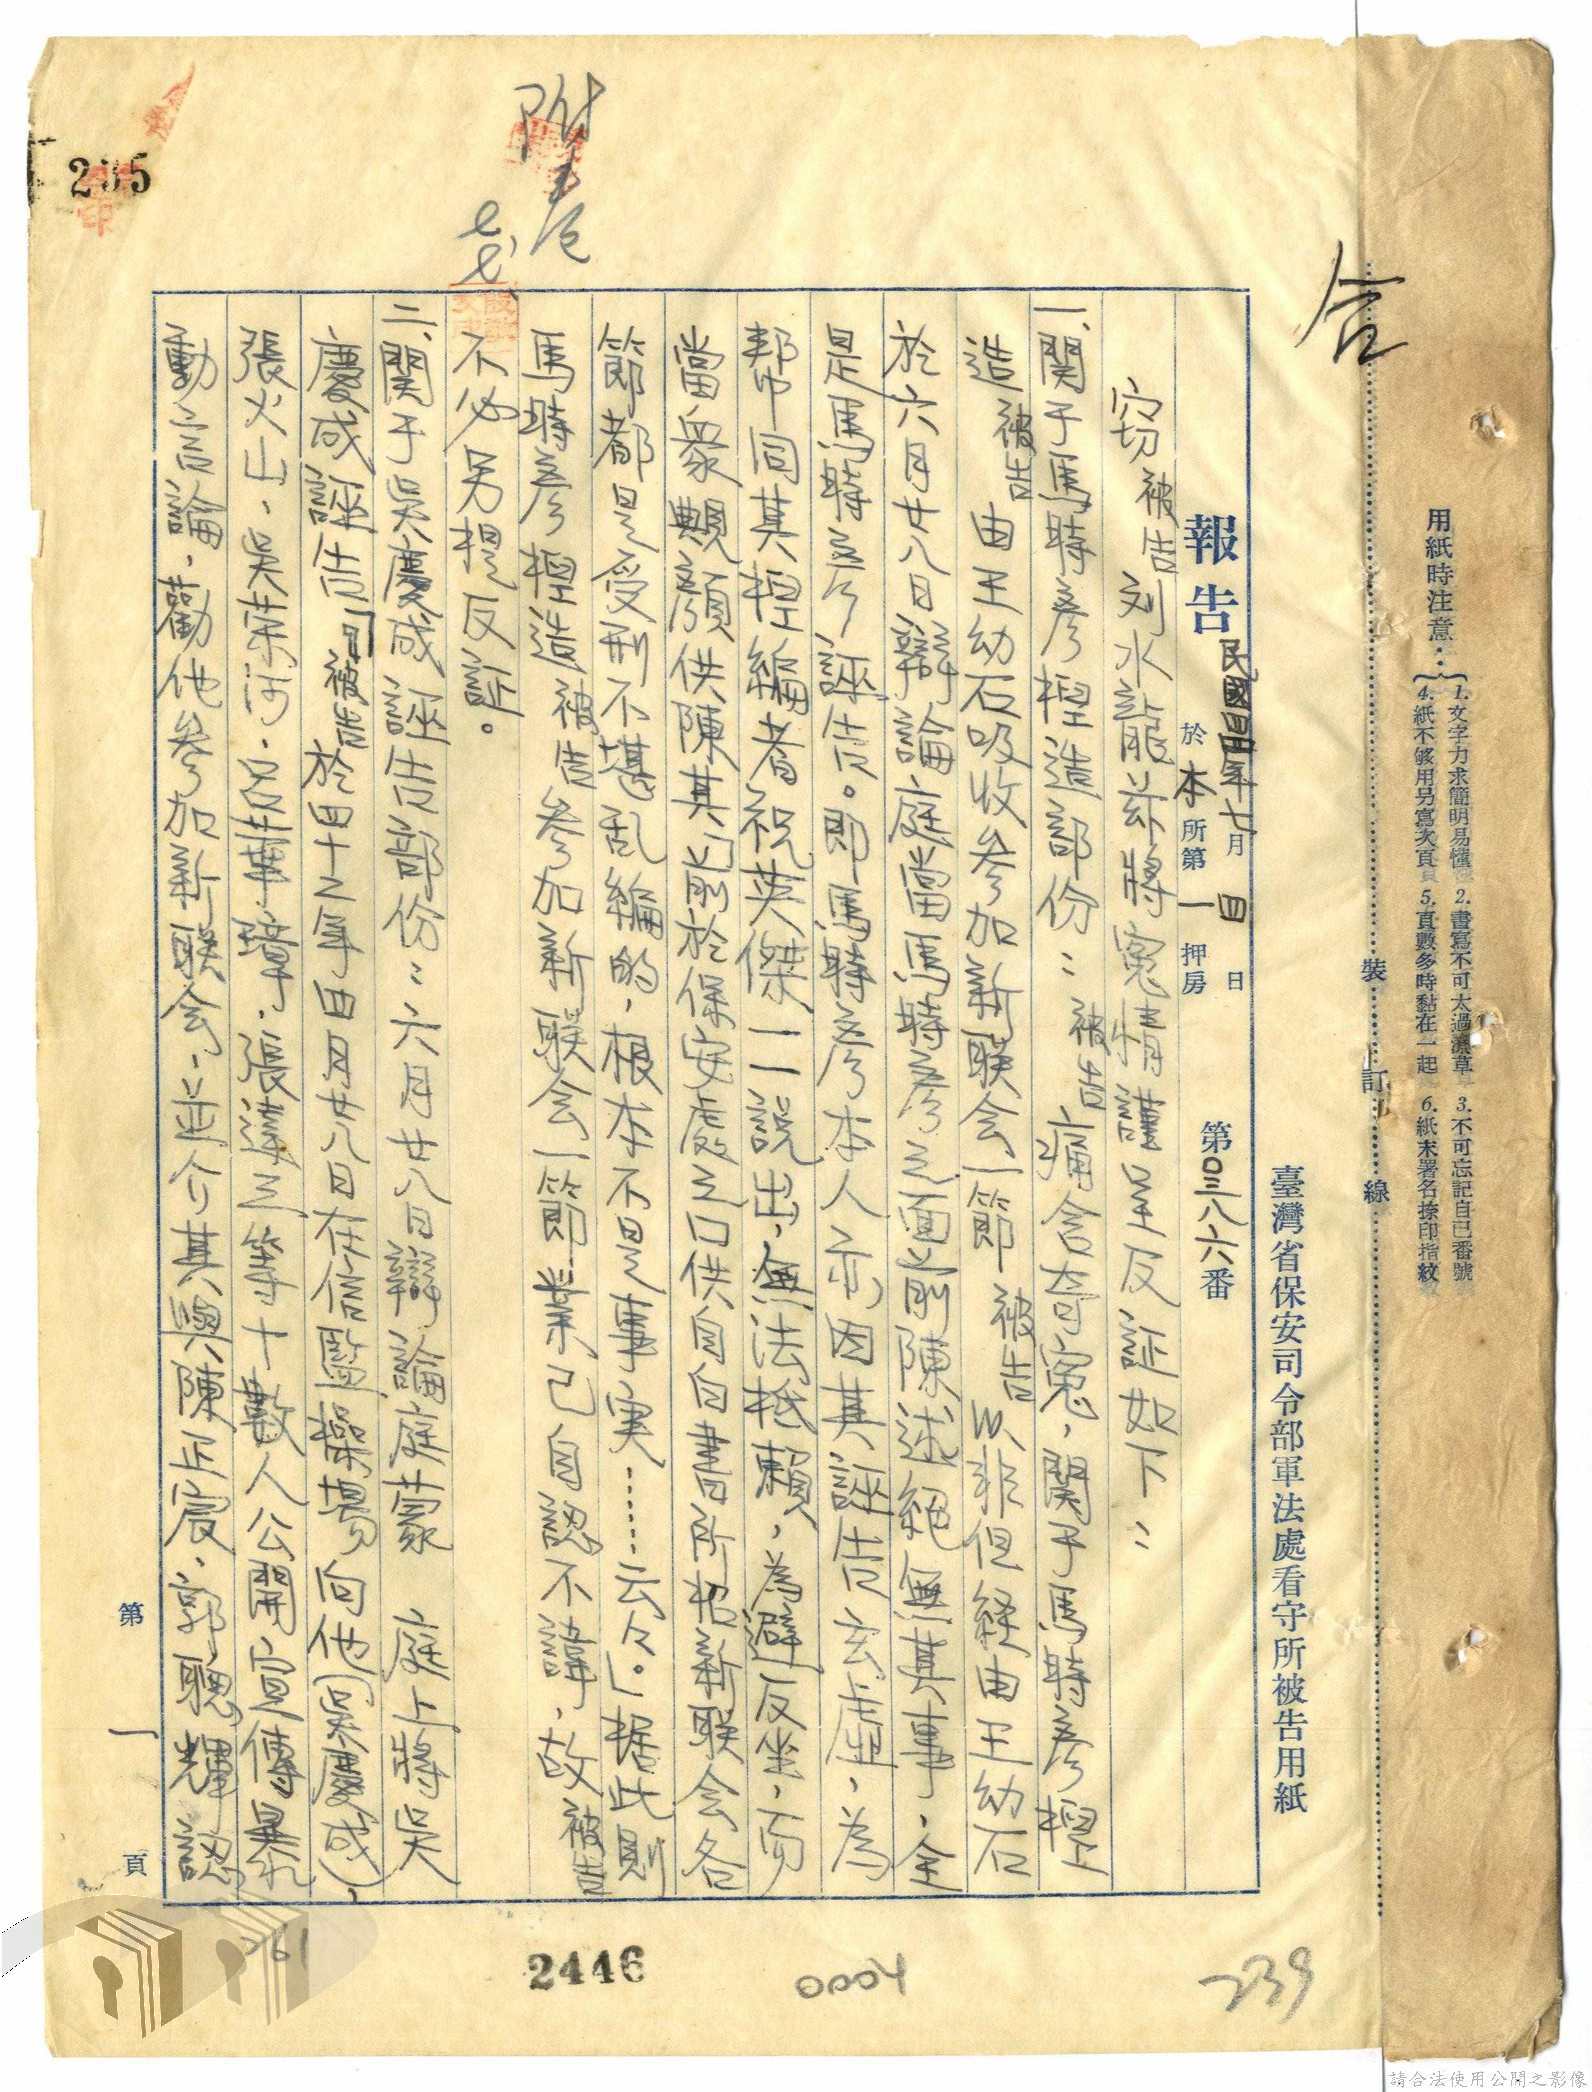 用紙時注意：
1.文字力求簡明易懂 2.書寫不可太過潦草 3.不可忘記自己番號
4.紙不够用另寫次頁 5.頁數多時黏在一起 6.紙末署名捺印指紋
裝訂線
臺灣省保安司令部軍法處看守所被告用紙
報告 民國四四年七月四日 於本所第一押房 第〇三八六番
竊被告刘水龍茲將寃情謹呈反証如下：
一、関于馬時彥揑造部份：被告痛含奇寃，関于馬時彥揑
造被告由王幼石吸收參加新联会一節被告以非但経由王幼石
於六月廿八日辯論庭當馬時彥之面前陳述絕無其事，全
是馬時彥誣告。即馬時彥本人亦因其誣告玄虛，為
帮同其揑編者祝英傑一一說出，無法抵賴，為避反坐，而
當衆顯顏供陳其「前於保安處之口供自白書所招新联会各
節都是受刑不堪乱編的，根本不是事实……云々」。据此則
馬時彥揑造被告參加新联会一節業已自認不諱，故被告
不必另提反証。
二、関于吳慶成誣告部份：六月廿八日辯論庭蒙 庭上將吳
慶成誣告「被告於四十二年四月廿八日在信監操場向他（吳慶成），
張火山，吳荣河，呂華璋，張達三等十數人公開宣傳暴
動言論，勸他參加新联会，並介其與陳正宸，郭聰輝認
第一頁
附卷
七、七、
235
2446
0004
239
261
請合法使用公開之影像